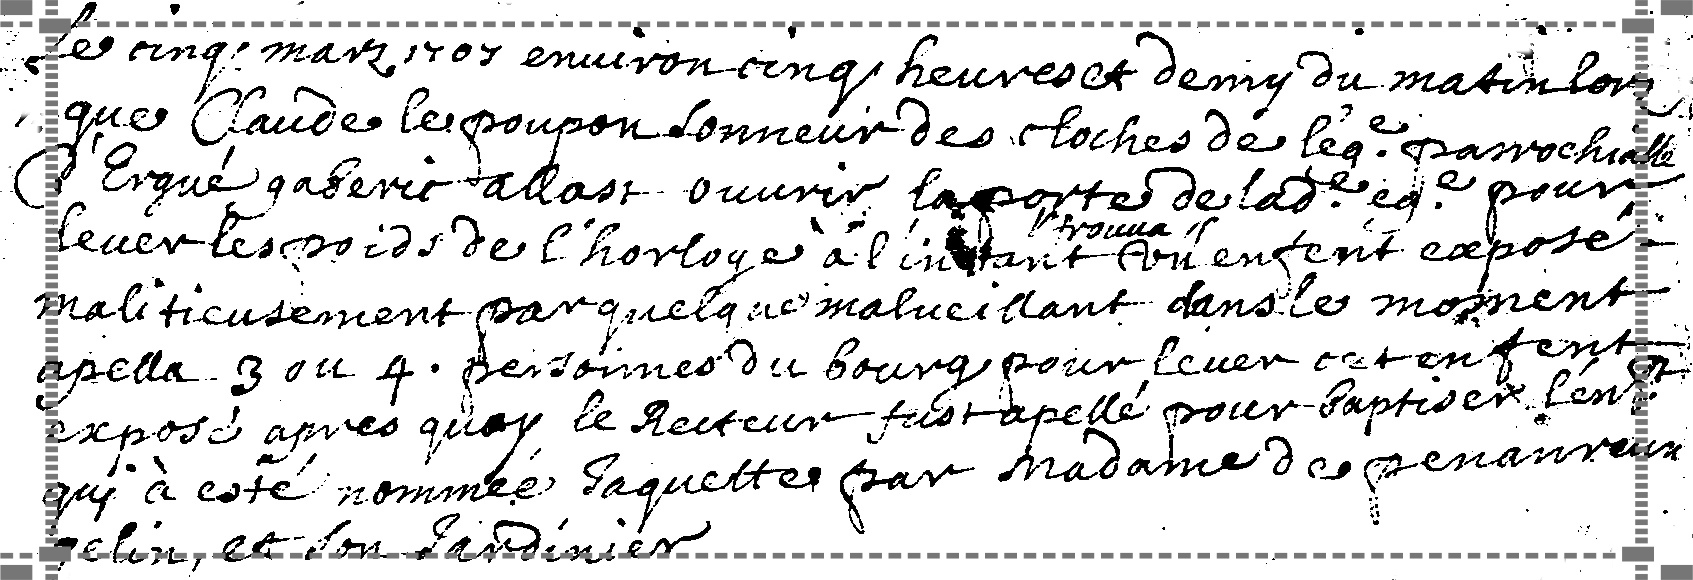 Le cinq. marz 1707 environ cinq heures et demy du matin lors
que Claude le poupon sonneur des cloches de l'ég.e parrochialle
d'Ergué gaberic allast ouurir la porte de lad.e eg.e pour
leuer les poids de l'horloge à l'instant trouua un enfent exposé
malitieusement par quelque malueillant dans le moment
apella 3 ou 4. personnes du bourg pour leuer cet enfent
exposé apres quoy le Recteur fust apellé pour baptiser l'enft
qui à esté nommée Jaquette par Madame de penanreun
gelin, et son Jardinier